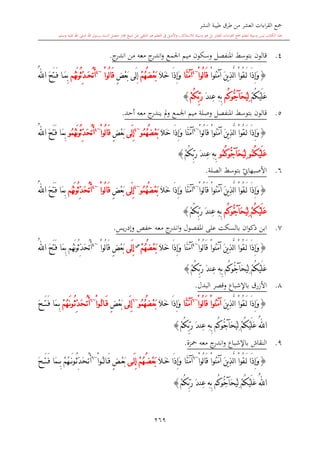 جمع القراءات العشر من طرق طيبة النشر
٤. قالون بتوسط المنفصل وسكون ميم الجمع واندرج معه من اندرج.
﴿ وَإِذَا لَقُوا۟ ٱلَّذِينَ ءَامَنُوا۟ قَالُوٓا۟ ءَامَنَّا وَإِذَا خَلَا بَعْضُهُمْ إِلَىٰ بَعْضٍ قَالُوٓا۟ أَتُحَدِّثُونَهُم بِمَا فَتَحَ ٱللَّهُ
عَلَيْكُمْ لِيُحَآجُّوكُم بِهِۦ عِندَ رَبِّكُمْ ﴾
٥. قالون بتوسط المنفصل وصلة ميم الجمع ولم يندرج معه أحد.
﴿ وَإِذَا لَقُوا۟ ٱلَّذِينَ ءَامَنُوا۟ قَالُوٓا۟ ءَامَنَّا وَإِذَا خَلَا بَعْضُهُمُو إِلَىٰ بَعْضٍ قَالُوٓا۟ أَتُحَدِّثُونَهُمُو بِمَا فَتَحَ ٱللَّهُ
عَلَيْكُمُو لِيُحَآجُّوكُمُو بِهِۦ عِندَ رَبِّكُمْ ﴾
٦. الأصبهاني بتوسط الصلة.
﴿ وَإِذَا لَقُوا۟ ٱلَّذِينَ ءَامَنُوا۟ قَالُوٓا۟ ءَامَنَّا وَإِذَا خَلَا بَعْضُهُمُو إِلَىٰ بَعْضٍ قَالُوٓا۟ أَتُحَدِّثُونَهُم بِمَا فَتَحَ ٱللَّهُ
عَلَيْكُمْ لِيُحَآجُّوكُم بِهِۦ عِندَ رَبِّكُمْ ﴾
٧. ابن ذكوان بالسكت على المفصول واندرج معه حفص وإدريس.
﴿ وَإِذَا لَقُوا۟ ٱلَّذِينَ ءَامَنُوا۟ قَالُوٓا۟ ءَامَنَّا وَإِذَا خَلَا بَعْضُهُمْ إِلَىٰ بَعْضٍ قَالُوٓا۟ أَتُحَدِّثُونَهُم بِمَا فَتَحَ ٱللَّهُ
عَلَيْكُمْ لِيُحَآجُّوكُم بِهِۦ عِندَ رَبِّكُمْ ﴾
٨. الأزرق بالإشباع وقصر البدل.
﴿ وَإِذَا لَقُوا۟ ٱلَّذِينَ ءَامَنُوا۟ قَالُوٓا۟ ءَامَنَّا وَإِذَا خَلَا بَعْضُهُمُو إِلَىٰ بَعْضٍ قَالُوٓا۟ أَتُحَدِّثُونَهُم بِمَا فَتَحَ
ٱللَّهُ عَلَيْكُمْ لِيُحَآجُّوكُم بِهِۦ عِندَ رَبِّكُمْ ﴾
٩. النقاش بالإشباع واندرج معه حمزة.
﴿ وَإِذَا لَقُوا۟ ٱلَّذِينَ ءَامَنُوا۟ قَالُوٓا۟ ءَامَنَّا وَإِذَا خَلَا بَعْضُهُمْ إِلَىٰ بَعْضٍ قَالُوٓا۟ أَتُحَدِّثُونَهُم بِمَا فَتَحَ
ٱللَّهُ عَلَيْكُمْ لِيُحَآجُّوكُم بِهِۦ عِندَ رَبِّكُمْ ﴾
٢٦٩